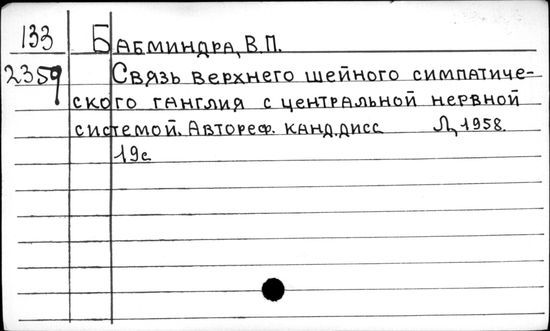 133 БАБМИНДРА, В.П.
2359 Связь верхнего шейного симпатиче-
ского ганглия с центральной нервной
системой. Автореф. канд. дисс Л, 1958.
19с